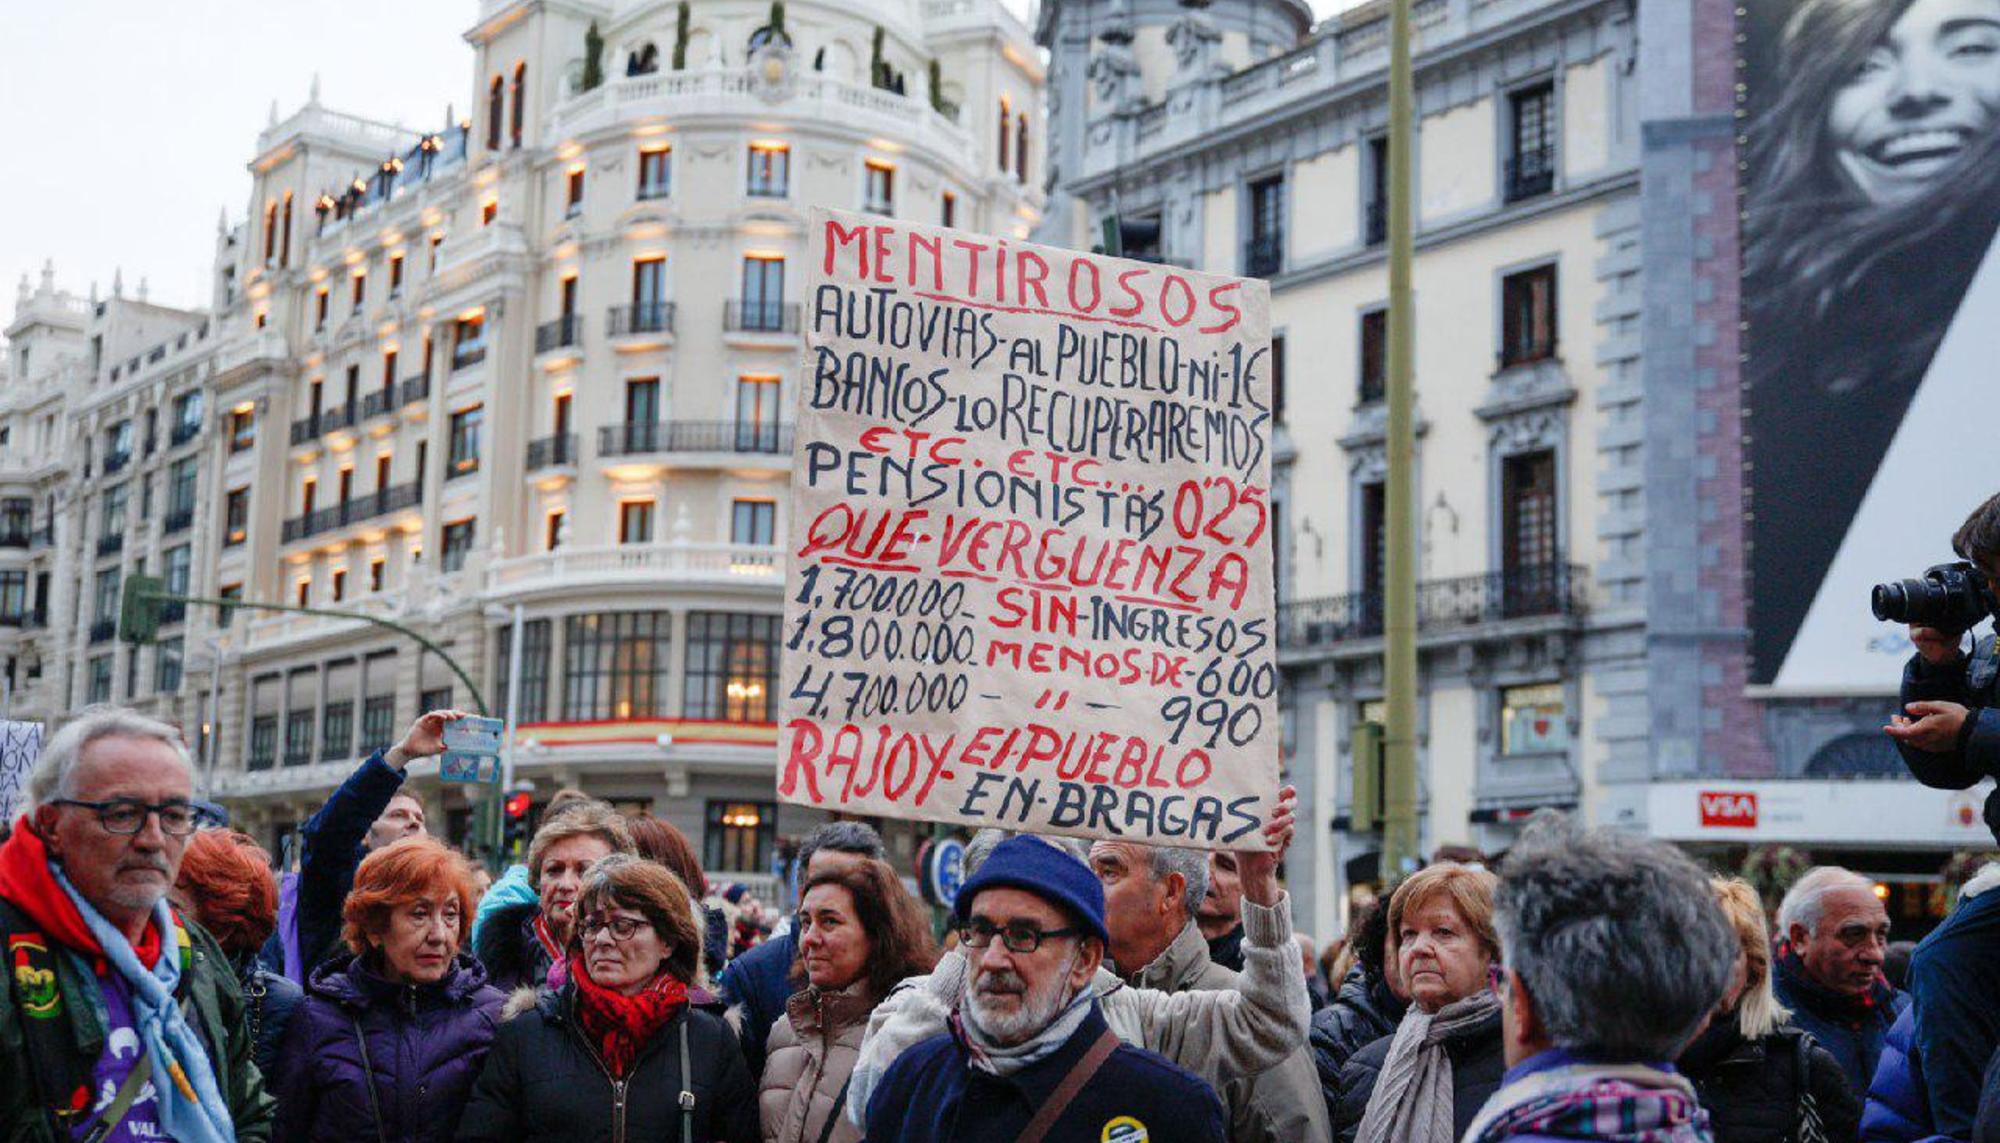 MENTIROSOS
AUTOVIAS-AL PUEBLO-Ni-1€
BANCOS-LO RECUPERAREMOS
ETC. ETC...
PENSIONISTAS 0'25
QUE-VERGUENZA
1.700.000- SIN-INGRESOS
1.800.000- MENOS-DE-600
4.700.000 - " - 990
RAJOY-El-PUEBLO
EN-BRAGAS
VSA